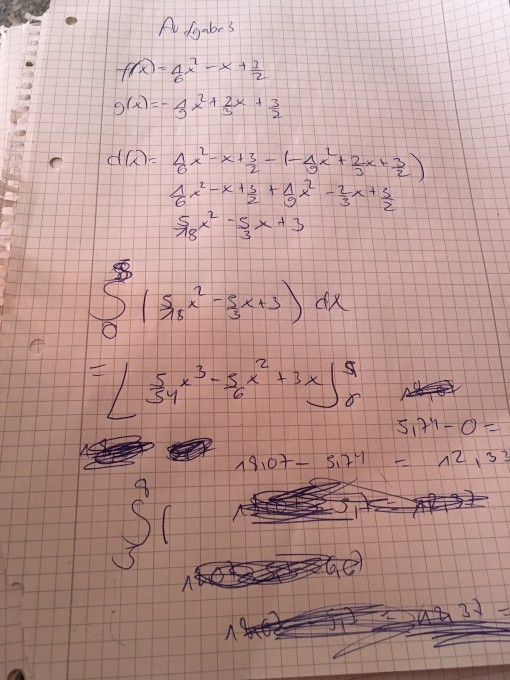 Aufgabe 3
f(x) = 1/6 x² - x + 3/2
g(x) = - 1/9 x² + 2/3 x + 3/2
d(x) = 1/6 x² - x + 3/2 - (- 1/9 x² + 2/3 x + 3/2)
1/6 x² - x + 3/2 + 1/9 x² - 2/3 x + 3/2
5/18 x² - 5/3 x + 3
∫ 0 ( 5/18 x² - 5/3 x + 3 ) dx
= [ 5/54 x³ - 5/6 x² + 3x ]
5,74 - 0 =
18,07 - 5,74 = 12,33
8
∫ (
3